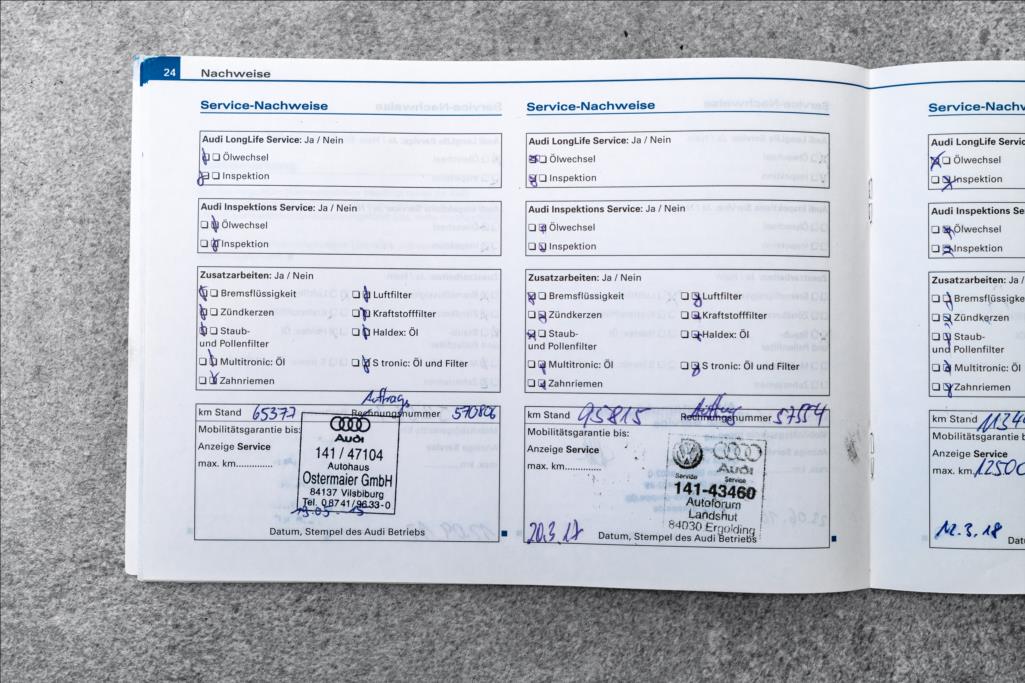 24 Nachweise
Service-Nachweise
Audi LongLife Service: Ja / Nein
Ölwechsel
Inspektion
Audi Inspektions Service: Ja / Nein
Ölwechsel
Inspektion
Zusatzarbeiten: Ja / Nein
Bremsflüssigkeit
Luftfilter
Zündkerzen
Kraftstofffilter
Staub-
und Pollenfilter
Haldex: Öl
Multitronic: Öl
S tronic: Öl und Filter
Zahnriemen
Auftrags
km Stand 65377 Rechnungsnummer 570806
Mobilitätsgarantie bis:
Anzeige Service
max. km.............
Audi
141 / 47104
Autohaus
Ostermaier GmbH
84137 Vilsbiburg
Tel. 0 87 41 / 96 33-0
Datum, Stempel des Audi Betriebs
Service-Nachweise
Audi LongLife Service: Ja / Nein
Ölwechsel
Inspektion
Audi Inspektions Service: Ja / Nein
Ölwechsel
Inspektion
Zusatzarbeiten: Ja / Nein
Bremsflüssigkeit
Luftfilter
Zündkerzen
Kraftstofffilter
Staub-
und Pollenfilter
Haldex: Öl
Multitronic: Öl
S tronic: Öl und Filter
Zahnriemen
km Stand 95815 Rechnungsnummer
Mobilitätsgarantie bis:
Anzeige Service
max. km.............
Audi
Service Service
141-43460
Autoforum
Landshut
84030 Ergolding
20.3.17 Datum, Stempel des Audi Betriebs
Service-Nachw
Audi LongLife Se
Ölwechsel
Inspektion
Audi Inspektions Se
Ölwechsel
Inspektion
Zusatzarbeiten: Ja
Bremsflüssigke
Zündkerzen
Staub-
und Pollenfilter
Multitronic: Öl
Zahnriemen
km Stand 1134
Mobilitätsgarantie b
Anzeige Service
max. km. 12500
12.3.18 Datu